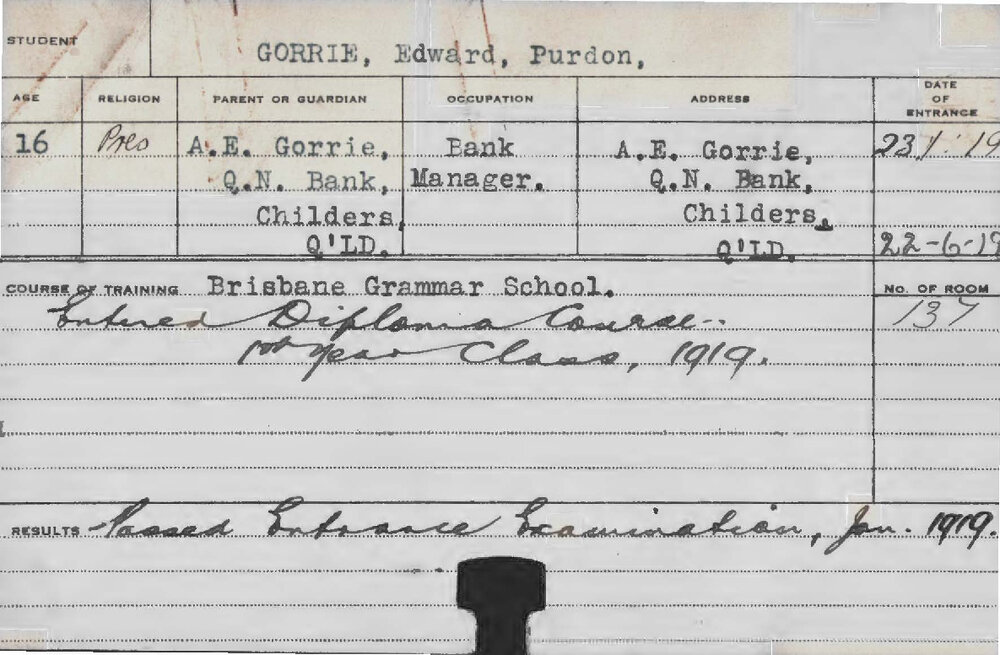 STUDENT
GORRIE, Edward, Purdon,
AGE RELIGION PARENT OR GUARDIAN OCCUPATION ADDRESS DATE OF ENTRANCE
16 Pres A.E. Gorrie, Bank A.E. Gorrie, 23/1/19
Q.N. Bank, Manager. Q.N. Bank,
Childers, Childers,
Q'LD. Q'LD. 22-6-19
COURSE OF TRAINING Brisbane Grammar School. No. OF ROOM
Entered Diploma Course - 137
1st Year Class, 1919.
RESULTS Passed Entrance Examination, Jan. 1919.